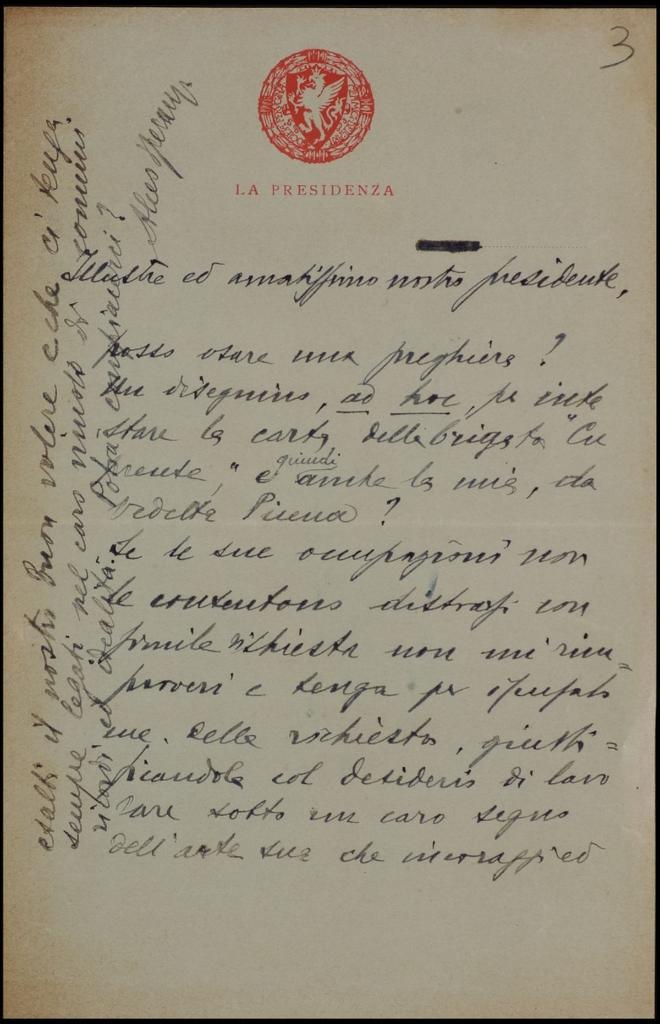 3
LA PRESIDENZA
Illustre ed amatissimo nostro presidente,
posso osare una preghiera?
Un disegnino, ad hoc, per inte
stare la carta della brigata "Cu
quindi
e anche la mia, da
vedetta Picena?
Se le sue occupazioni non
le consentono distrarsi con
simile richiesta non mi rim=
proveri e tenga per
me. della richiesta, giusti=
ficandola col desiderio di lavo
rare sotto un caro segno
dell'arte sua che incoraggi ed
esalti il nostro buon volere e che ci tenga
sempre legati nel caro nimolo di comuni
ricordi ed idealità. Potrà